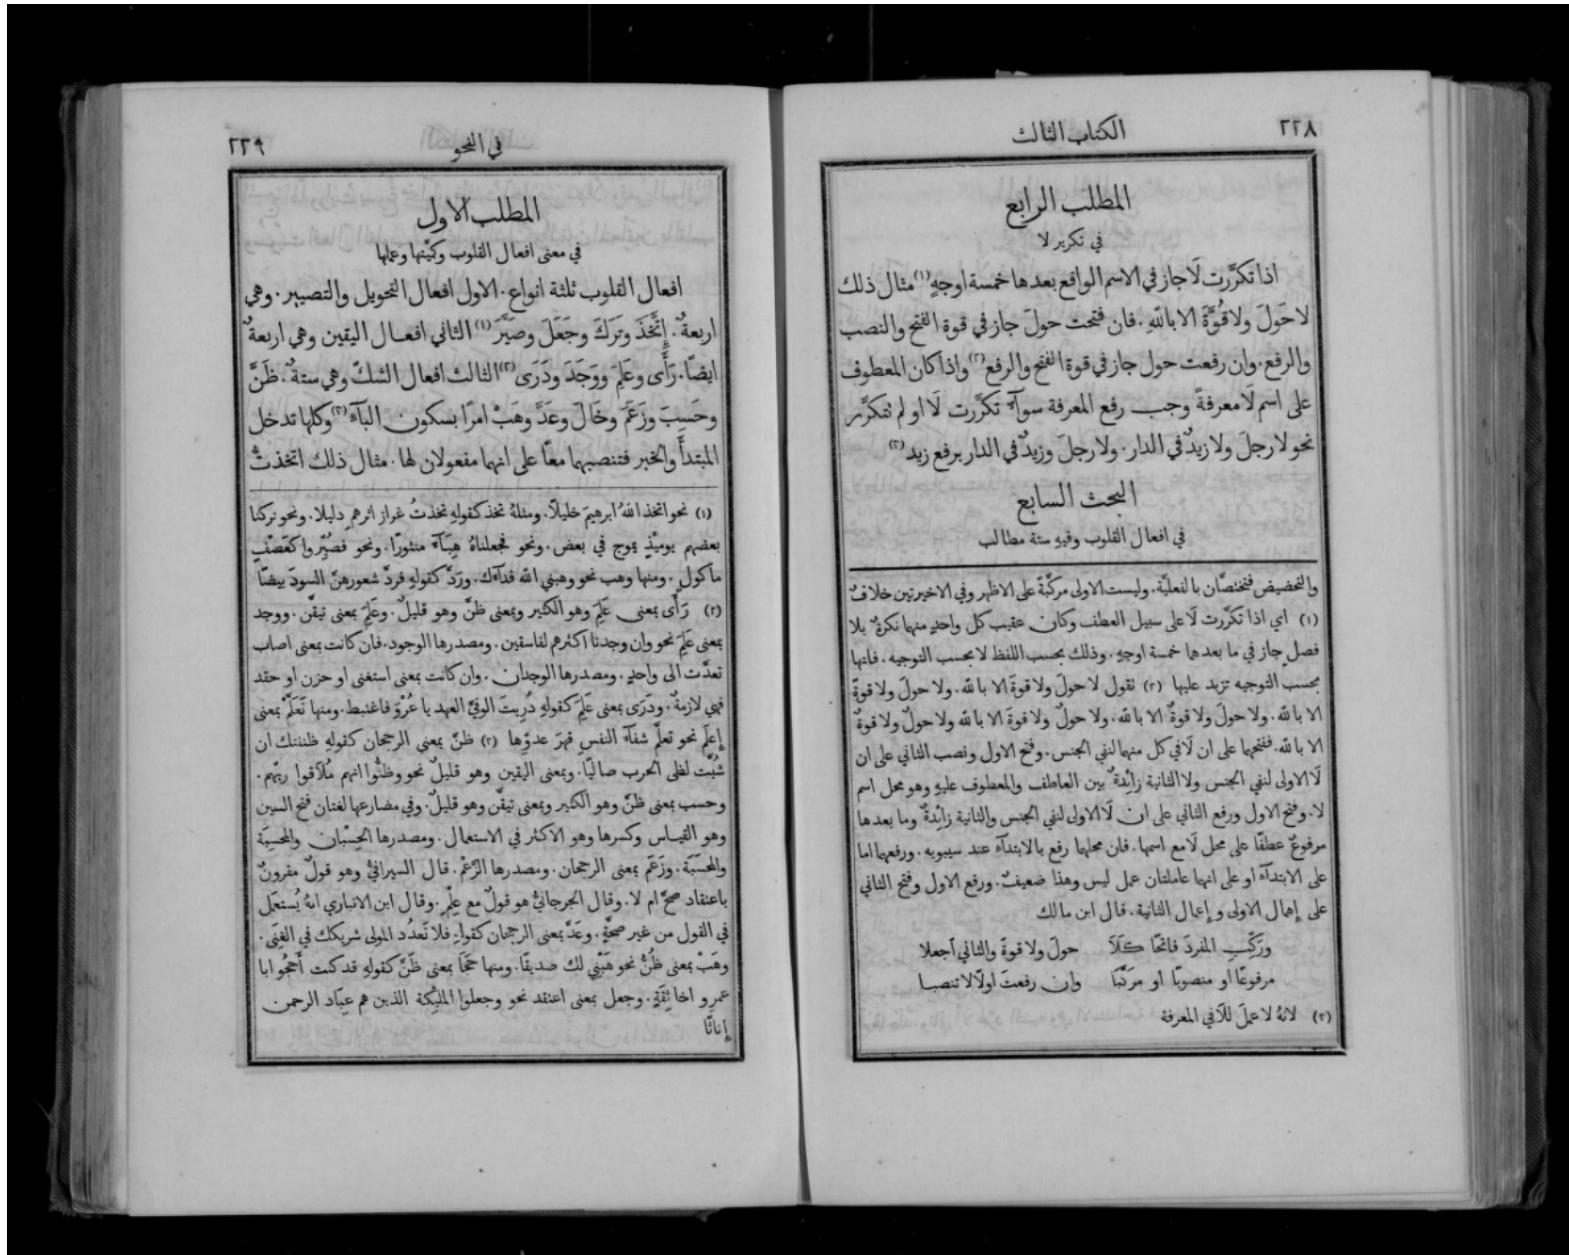 ٢٢٨
الكتاب الثالث
المطلب الرابع
في تكرير لا
اذا تكرَّرت لَا جاز في الاسم الواقع بعدها خمسة اوجهٍ (١) مثال ذلك
لا حَولَ ولا قُوَّةَ الا بالله. فان فتحت حولَ جاز في قوة الفتح والنصب
والرفع. وان رفعت حول جاز في قوة الفتح والرفع (٢) واذا كان المعطوف
على اسم لَا معرفةً وجب رفع المعرفة سوآءٌ تكرَّرت لَا او لم تتكرَّر
نحو لا رجلَ ولا زيدٌ في الدار. ولا رجلَ وزيدٌ في الدار برفع زيد (٣)
البحث السابع
في افعال القلوب وفيهِ ستة مطالب
والتحضيض فتختصَّان بالفعليَّة. وليست الاولى مركَّبةً على الاظهر وفي الاخيرتين خلافٌ
(١) اي اذا تكرَّرت لَا على سبيل العطف وكان عقيب كل واحدٍ منهما نكرةٌ بلا
فصلٍ جاز في ما بعدهما خمسة اوجهٍ. وذلك بحسب اللفظ لا بحسب التوجيه. فانها
بحسب التوجيه تزيد عليها (٢) نقول لا حولَ ولا قوةَ الا بالله. ولا حولَ ولا قوةً
الا بالله. ولا حولَ ولا قوةٌ الا بالله. ولا حولٌ ولا قوةَ الا بالله ولا حولٌ ولا قوةٌ
الا بالله. ففتحهما على ان لَا في كل منهما لنفي الجنس. وفتح الاول ونصب الثاني على ان
لَا الاولى لنفي الجنس ولا الثانية زائدةٌ بين العاطف والمعطوف عليهِ وهو محل اسم
لا. وفتح الاول ورفع الثاني على ان لَا الاولى لنفي الجنس والثانية زائدةٌ وما بعدها
مرفوعٌ عطفًا على محل لَا مع اسمها. فان محلهما رفع بالابتدآء عند سيبويه. ورفعهما اما
على الابتدآء او على انهما عاملتان عمل ليس وهذا ضعيفٌ. ورفع الاول وفتح الثاني
على إهمال الاولى وإعمال الثانية. قال ابن مالك
وركِّبِ المفردَ فاتحًا كَلَا حولَ ولا قوةَ والثاني اجعلا
مرفوعًا او منصوبًا او مركَّبَا وان رفعتَ اولًا لا تنصبا
(٣) لانهُ لا عملَ للَا في المعرفة
٢٢٩
في النحو
المطلب الاول
في معنى افعال القلوب وكمّيتها وعملها
افعال القلوب ثلثة انواع. الاول افعال التحويل والتصيير. وهي
اربعةٌ. إِتَّخَذَ وتَرَكَ وجَعَلَ وصَيَّرَ (١) الثاني افعال اليقين وهي اربعةٌ
ايضًا. رَأَى وعَلِمَ ووَجَدَ ودَرَى (٢) الثالث افعال الشكّ وهي ستةٌ. ظَنَّ
وحَسِبَ وزَعَمَ وخَالَ وعَدَّ وهَبْ امرًا بسكون البآء (٣) وكلها تدخل
المبتدأَ والخبر فتنصبهما معًا على انهما مفعولان لها. مثال ذلك اتخذتُ
(١) نحو اتخذ اللهُ ابرهيمَ خليلًا. ومثلهُ تخذ كقولهِ تخذتُ غراز اثرهم دليلا. ونحو تركنا
بعضهم يومئذٍ يموج في بعض. ونحو فجعلناهُ هبآءً منثورًا. ونحو فصُيِّروا كعَصْفٍ
مأكول. ومنها وهب نحو وهبني الله فدآءك. ورَدَّ كقولهِ فردَّ شعورهنَّ السودَ بيضًا
(٢) رَأَى بمعنى عَلِمَ وهو الكثير وبمعنى ظنَّ وهو قليلٌ. وعَلِمَ بمعنى تيقَّن. ووجد
بمعنى عَلِمَ نحو وان وجدنا اكثرهم لفاسقين. ومصدرها الوجود. فان كانت بمعنى اصاب
تعدَّت الى واحدٍ. ومصدرها الوجدان. وان كانت بمعنى استغنى او حزن او حقد
فهي لازمةٌ. ودَرَى بمعنى عَلِمَ كقولهِ دُرِيتَ الوفيَّ العهد يا عُرْوَ فاغتبط. ومنها تَعَلَّمْ بمعنى
إِعلَم نحو تعلَّمْ شفآءَ النفسِ قهرَ عدوِّها (٣) ظنَّ بمعنى الرجحان كقولهِ ظننتك ان
شُبَّت لظى الحرب صاليًا. وبمعنى اليقين وهو قليلٌ نحو وظنُّوا انهم مُلَاقوا ربّهم.
وحسب بمعنى ظنَّ وهو الكثير وبمعنى تيقَّن وهو قليلٌ. وفي مضارعها لغتان فتح السين
وهو القياس وكسرها وهو الاكثر في الاستعمال. ومصدرها الحِسْبان والمحسِبَة
والمحسَبَة. وزَعَمَ بمعنى الرجحان. ومصدرها الزَعْم. قال السيرافيُّ وهو قولٌ مقرونٌ
باعتقاد صحَّ ام لا. وقال الجرجانيُّ هو قولٌ مع عِلْمٍ. وقال ابن الانباري انهُ يُستعمَل
في القول من غير صحَّةٍ. وعَدَّ بمعنى الرجحان كقولهِ فلا تَعدُدِ المولى شريكك في الغِنَى.
وهَبْ بمعنى ظُنَّ نحو هَبْني لك صديقًا. ومنها حَجَا بمعنى ظَنَّ كقولهِ قد كنت أَحجُو ابا
عمرٍو اخا ثِقَةٍ. وجعل بمعنى اعتقد نحو وجعلوا المليكة الذين هم عباد الرحمن
إِناثًا